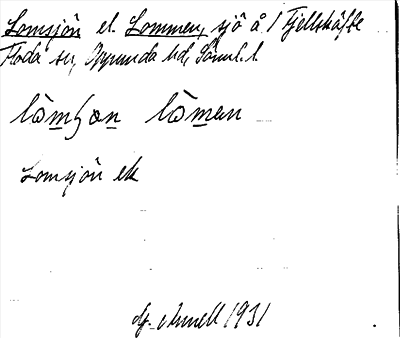 Lomsjön el. Lommen, sjö å 1 Fjellskäfte
Floda sn, Oppunda hd, Sörml. l.
lòmʃɔn lòmen
Lomsjön ek
1931